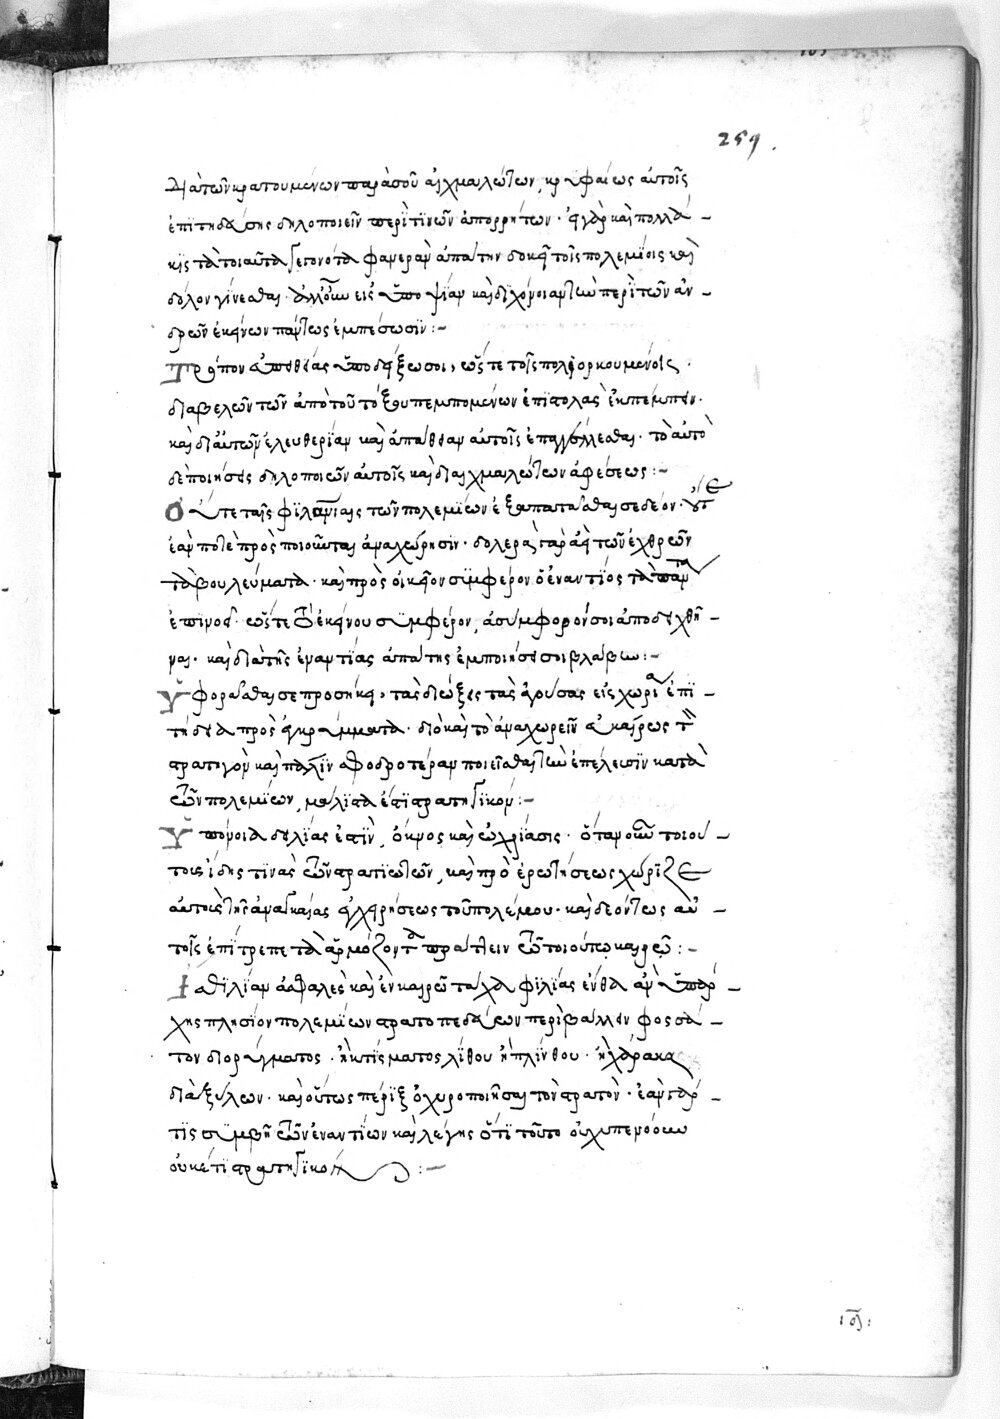 259.
Διὰ τῶν κρατουμένων παρὰ σοῦ αἰχμαλώτων, κρυφαίως αὐτοῖς
ἐπιτηδεύσης δηλοποιεῖν περί τινων ἀπορρήτων· εἰ γὰρ καὶ πολλά
κις τὰ τοιαῦτα γεγονότα φανερὰν ἀπάτην δοκεῖ τοῖς πολεμίοις καὶ
δόλον γίνεσθαι· ἀλλ' οὖν εἰς ὑποψίαν καὶ διχόνοιαν τὴν περὶ τῶν ἀν
δρῶν ἐκείνων πάντως ἐμπέσωσιν:-
Τρόπον ἀπαθείας ὑποδείξω σοι, ὥστε τοῖς πολιορκουμένοις·
διὰ βελῶν τῶν ἀπὸ τοῦ τόξου πεμπομένων ἐπιστολὰς ἐκπέμπειν·
καὶ δι αὐτῶν ἐλευθερίαν καὶ ἀπάθειαν αὐτοῖς ἐπαγγέλλεσθαι· τὸ αὐτὸ
δὲ ποιήσεις δηλοποιῶν αὐτοῖς καὶ δι αἰχμαλώτων ἀφέσεως:-
Οὔτε ταῖς φιλανθρωπίαις τῶν πολεμίων ἐξαπατᾶσθαι σε δέον· οὔτε
ἐάν ποτε προσποιοῦνται ἀναχώρησιν· δολερὰ γὰρ ἀεὶ τῶν ἐχθρῶν
τὰ βουλεύματα· καὶ πρὸς οἰκεῖον συμφέρον ὁ ἐναντίος τὰ πάντα
ἐπινοεῖ· ὥστε τὸ ἐκείνου συμφέρον, ἀσύμφορόν σοι ἀποδειχθῆ
ναι· καὶ διὰ τῆς ἐναντίας ἀπάτης ἐμποιήσει σοι βλάβην:-
Ὑφορᾶσθαι σε προσήκει, τὰς διώξεις τὰς ἀγούσας εἰς χωρία ἐπι
τήδεια πρὸς ἐγκρύμματα· διὸ καὶ τὸ ἀναχωρεῖν εὐκαίρως τὸν
στρατηγὸν καὶ πάλιν σφοδροτέραν ποιεῖσθαι τὴν ἐπέλευσιν κατὰ
τῶν πολεμίων, μάλιστά ἐστι στρατηγικόν:-
Ὑπόνοια δειλίας ἐστὶν, ὄκνος καὶ ὠχρίασις· ὅταν οὖν τοιού
τοις ἴδης τινὰς τῶν στρατιωτῶν, καὶ πρὸ ἐρωτήσεως χώριζε
αὐτοὺς τῆς ἀναγκαίας ἐγχειρήσεως τοῦ πολέμου· καὶ δεόντως αὐ
τοῖς ἐπίτρεπε τὰ ἁρμόζοντα πράττειν τῶ τοιούτω καιρῶ:-
χης πλησίον πολεμίων στρατοπεδεύων περιβάλλειν φοσσά
τον διορύγματος· ἢ κτίσματος λίθου ἢ πλίνθου· ἢ χάρακα
διὰ ξύλων· καὶ οὕτως πέριξ ὀχυροποιῆσαι τὸν στρατὸν· ἐὰν γάρ
τις συμβῆ τῶν ἐναντίων καὶ λέγης ὅτι τοῦτο οὐχ ὑπενόουν
οὐκέτι στρατηγικὸν:-